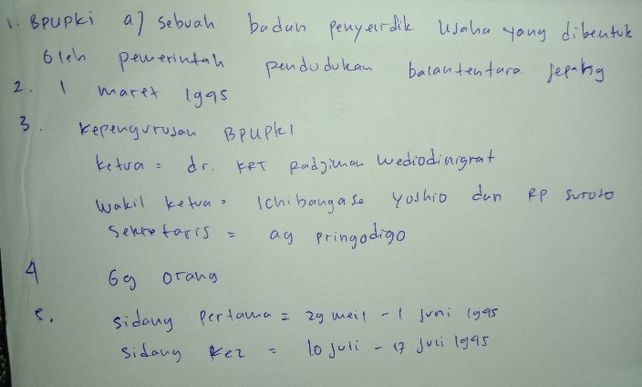 1. BPUPKI a] sebuah badan penyeirdik usaha yang dibentuk
oleh pemerintah pendudukan balantentara jepang
2. 1 maret 1945
3. Kepengurusan BPUPKI
ketua = dr. KRT Radjiman Wediodinigrat
Wakil ketua = Ichibangase Yoshio dan RP Suroso
Sekretaris = ag pringodigo
4 69 orang
5. Sidang Pertama = 29 meil - 1 Juni 1945
Sidang Ke2 = 10 juli - 17 juli 1945